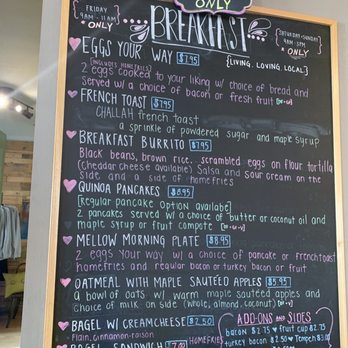 ONLY
FRIDAY
9AM - 11AM
ONLY
BREAKFAST
SATURDAY-SUNDAY
9AM - 3PM
ONLY
{LIVING. LOVING. LOCAL}
EGGS YOUR WAY $7.95
(INCLUDES HOMEFRIES)
2 eggs cooked to your liking w/ choice of bread and
Served w/ a choice of bacon or fresh fruit
FRENCH TOAST $7.95
CHALLAH french toast
a sprinkle of powdered sugar and maple syrup
BREAKFAST BURRITO $7.95
Black beans, brown rice, scrambled eggs on flour tortilla
(cheddar cheese available) Salsa and sour cream on the
side and a side of homefries
QUINOA PANCAKES $8.95
[Regular pancake option available]
2 pancakes served w/ a choice of butter or coconut oil and
maple syrup or fruit compote
MELLOW MORNING PLATE $8.95
2 eggs your way w/ a choice of pancake or frenchtoast
homefries and regular bacon or turkey bacon or fruit
OATMEAL WITH MAPLE SAUTÉED APPLES $5.95
a bowl of oats w/ warm maple sautéed apples and
choice of milk on side (whole, almond, coconut)
BAGEL W/ CREAMCHEESE $2.50
Plain, cinnamon-raisin
BAGEL SANDWICH $7.00
ADD-ONS AND SIDES
bacon $2.75 ♥ fruit cup $2.75
turkey bacon ♥ Tempeh
HOMEFRIES